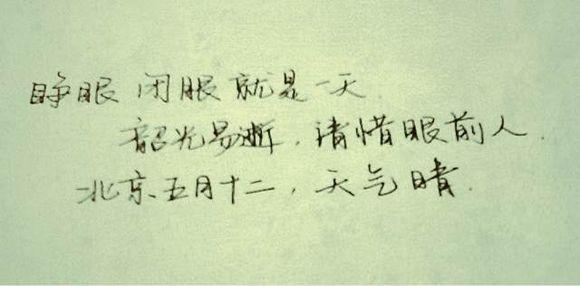 睁眼闭眼就是一天
韶光易逝，请惜眼前人。
北京五月十二，天气晴。